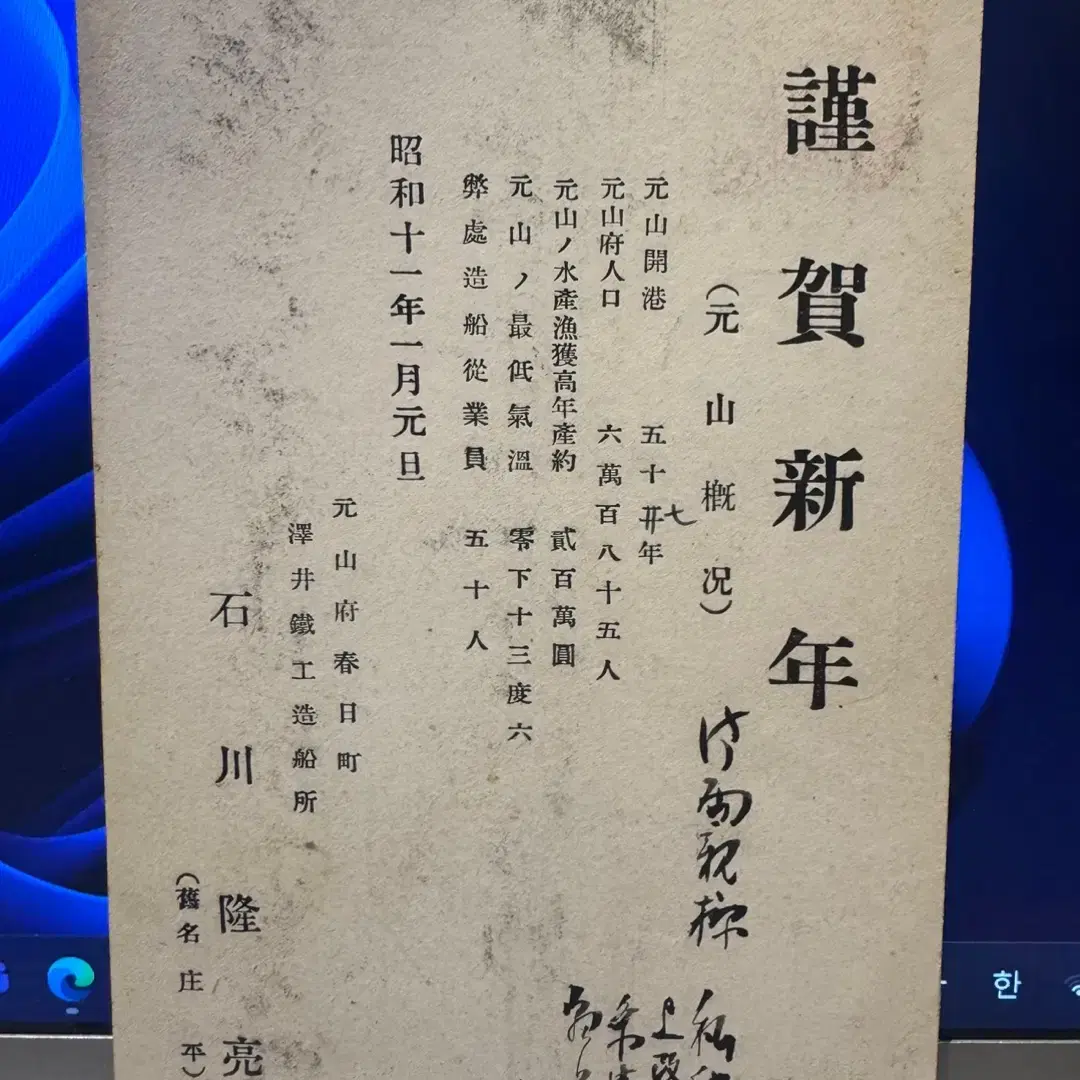 謹賀新年
(元山槪況)
元山開港 五十七年
元山府人口 六萬百八十五人
元山ノ水產漁獲高年產約 貳百萬圓
元山ノ最低氣溫 零下十三度六
弊處造船從業員 五十人
昭和十一年一月元旦
元山府春日町
澤井鐵工造船所
石川隆亮
(舊名庄平)
한